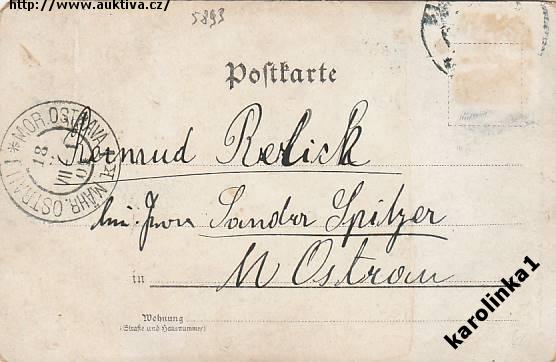 http://www.auktiva.cz/
5893
Postkarte
*MOR.OSTRAVA
18
VII
MÄHR.OSTRAU 1
Relick
bei Herrn Sandor Spitzer
in M Ostrau
Wohnung
(Straße und Hausnummer)
karolinka1